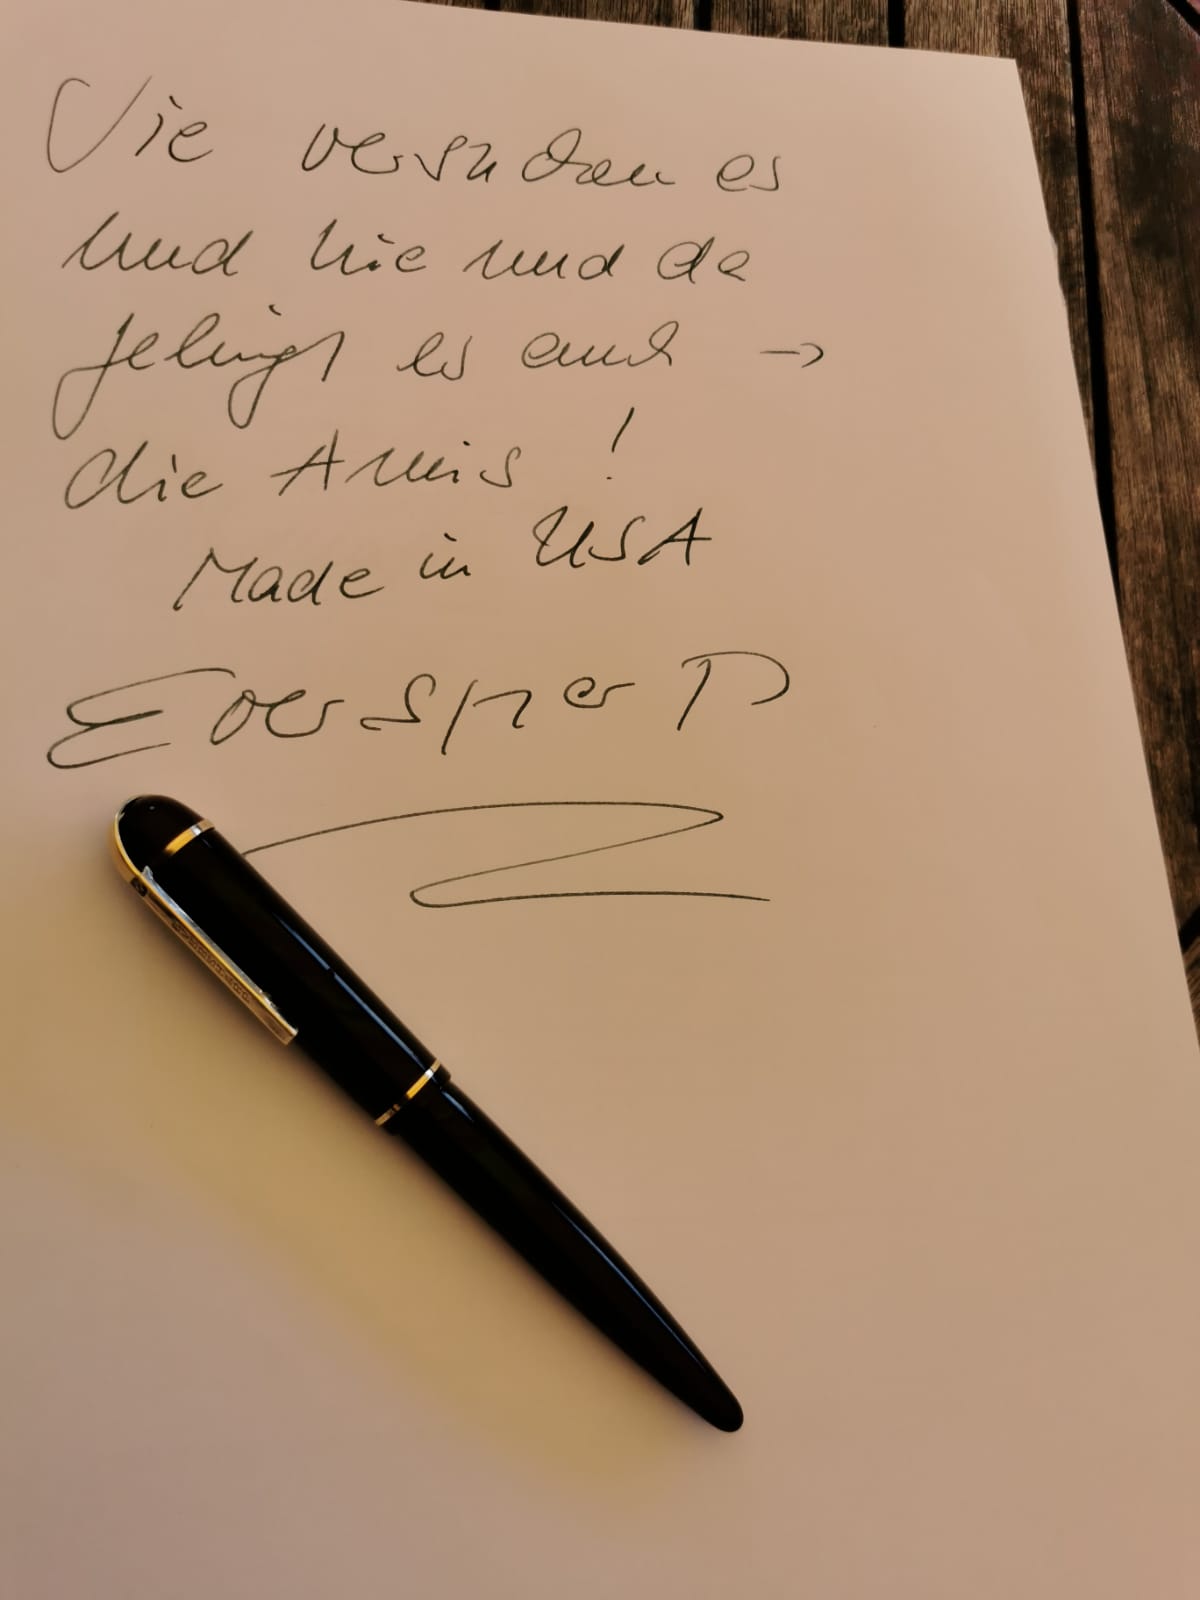 Sie versuchen es
und hie und da
gelingt es auch →
die Amis !
Made in USA
Eversharp